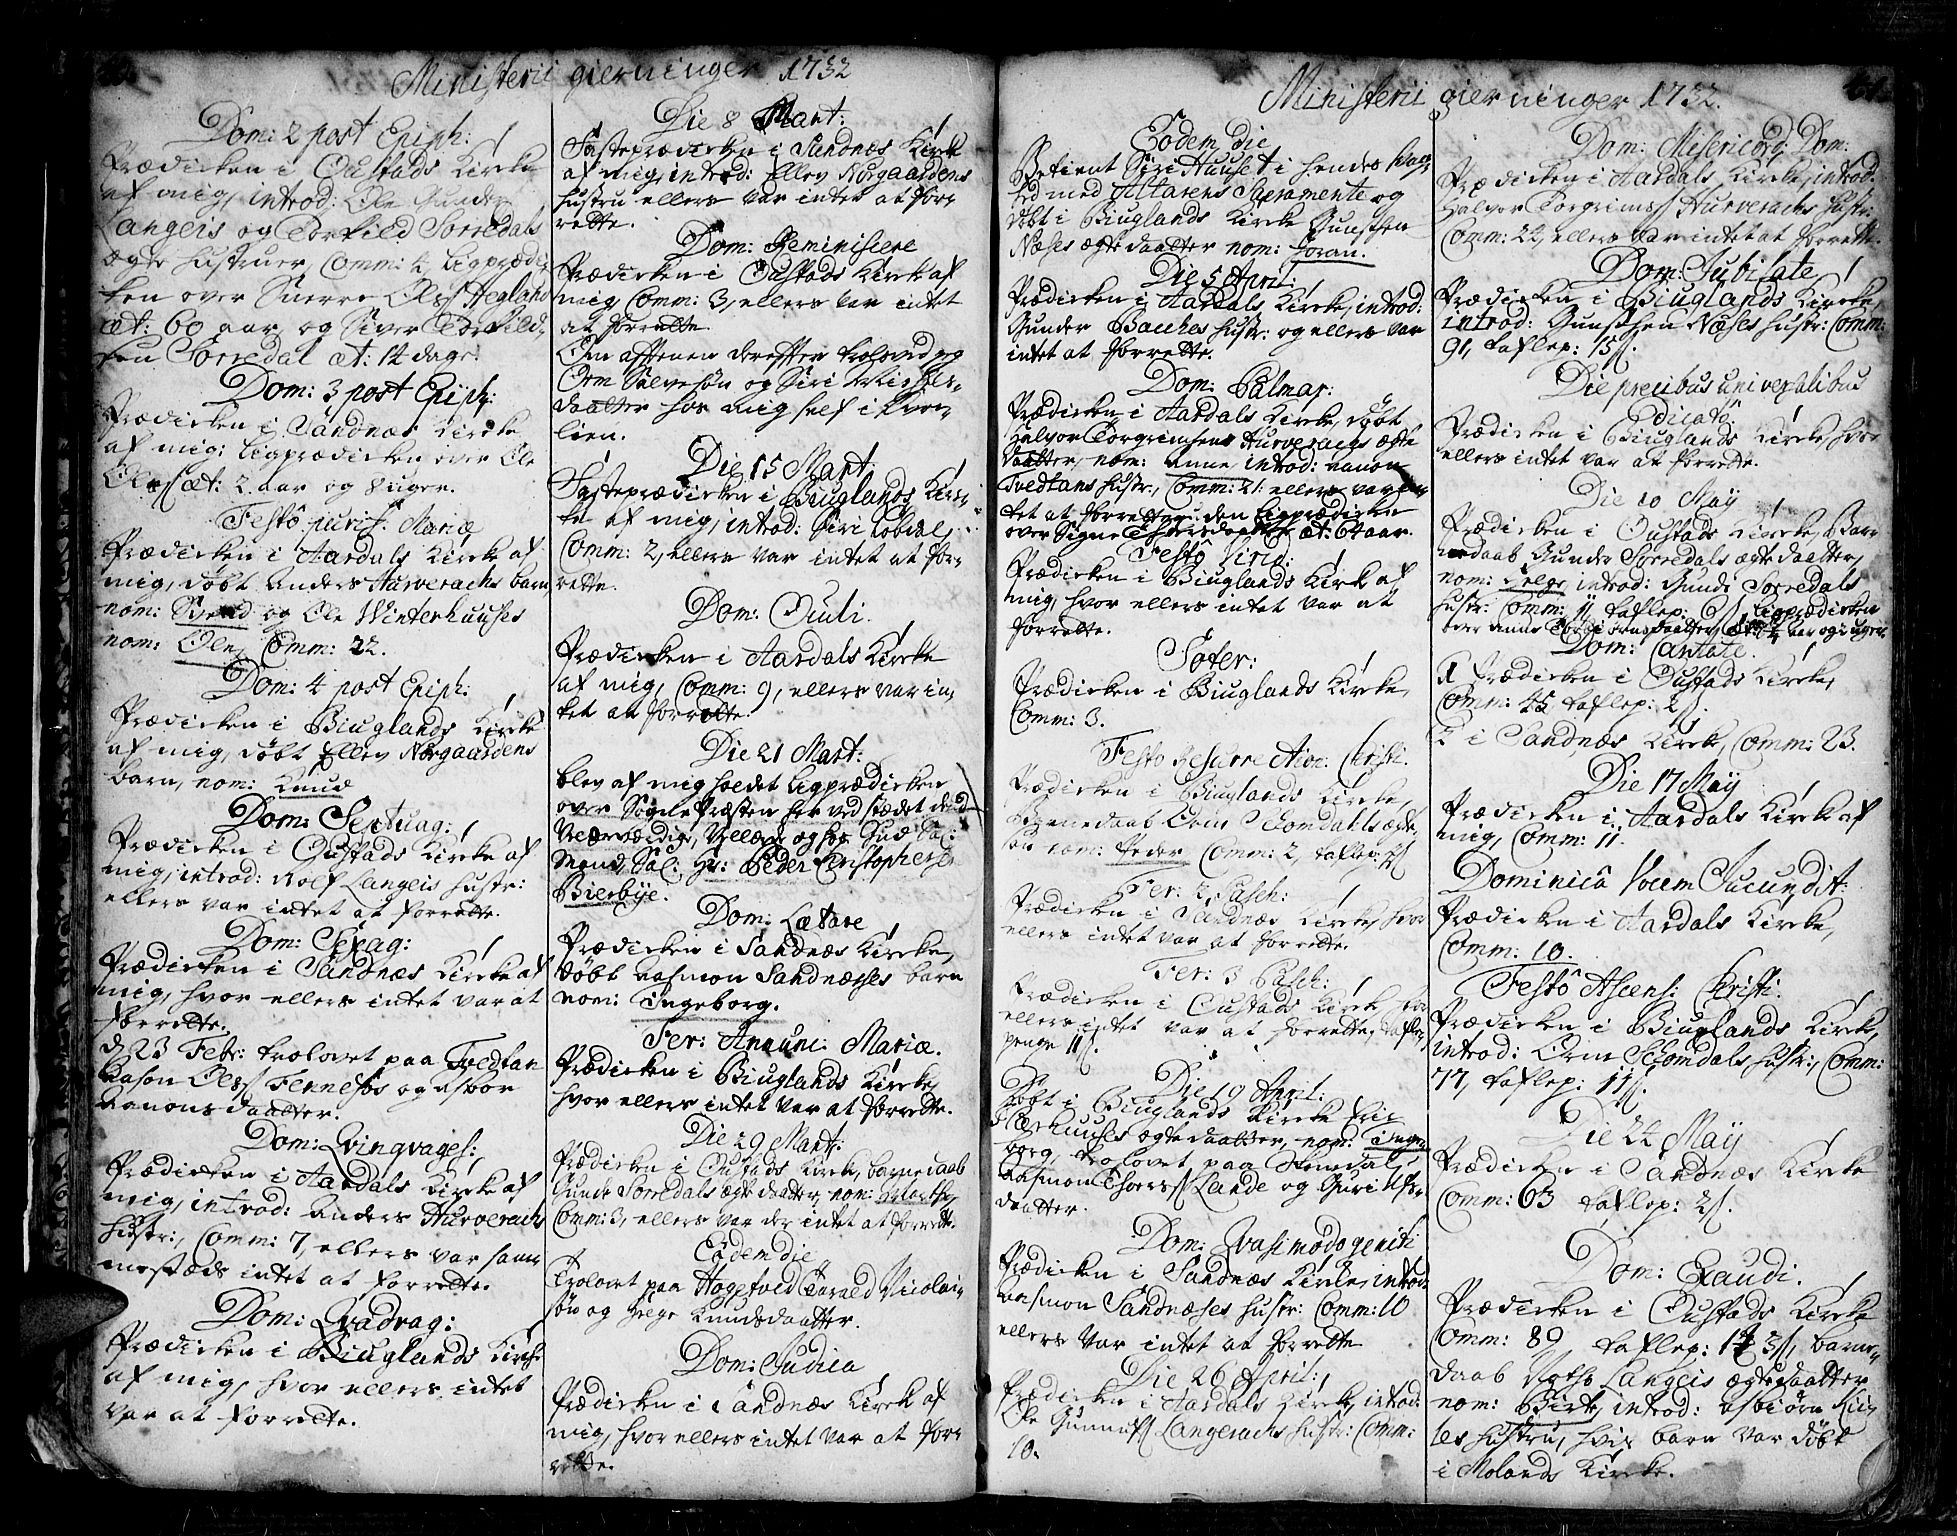 60.
Ministerii gierninger 1732
Dom: 2 post Epiph:
Prædicken i Oustads Kircke
af mig, introd: Ole Gunder
Langeis og Torkild Sorredals
ægte hustruer, Comm: 4, Ligprædi-
ken over Snerre Ols: Hegland
æt: 60 aar, og Siver Torkild-
sen Sorredal æt: 14 dage.
Dom: 3 post Epiph:
Prædicken i Sandnæs Kircke
af mig; Ligprædicken over Ole
Ols: æt: 2 aar og 8 uger.
Festô purif: Mariæ
Prædicken i Aardals Kircke af
mig, døbt Anders Hurverachs barn
nom: Svend og Ole Winterhuuses
nom: Ole, Comm: 22.
Dom: 4 post Epiph:
Prædicken i Biuglands Kircke
af mig, døbt Ellev Norgaardens
barn, nom: Knud
Dom: Septuag:
Prædicken i Oustads Kircke af
mig, introd: Rolf Langeis hustr:
ellers var intet at forrette.
Dom: Sexag:
Prædicken i Sandnæs Kircke af
mig, hvor ellers intet var at
forrette.
d. 23 Febr: trolovet paa Tvedtan
Aason Ols: Fennefos og Asvor
Aanonsdaatter.
Dom: Qvinqvages:
Prædicken i Aardals Kircke af
mig, introd: Anders Hurverachs
hustr:, Comm: 7, ellers var sam-
mestæds intet at forrette.
Dom: Qvadrag:
Prædicken i Biuglands Kircke
af mig, hvor ellers intet
var at forrette.
Die 8 Mart:
Fasteprædicken i Sandnæs Kircke
af mig, introd: Ellev Norgaardens
hustru ellers var intet at for-
rette.
Dom: Reminiscere
Prædicken i Oustads Kirck af
mig Comm: 3, ellers var intet
at forrette
Om afftenen dereffter trolovede jeg
Orm Salvesøn og Siri
daatter hos mig self i
lien.
Die 15 Mart:
Fasteprædicken i Biuglands Kirc-
ke af mig, introd: Siri Lobdal,
Comm: 2, ellers var intet at for-
rette.
Dom: Oculi.
Prædicken i Aardals Kircke
af mig, Comm: 9, ellers var in-
tet at forrette.
Die 21 Mart:
blev af mig holdet Ligprædicken
over SognePræsten her ved stædet dend
Velærværdig, Vellærde og hos Gud Sal:
Mand, Sal: Hr: Peder Christophersen
Bierbÿe.
Dom: Lætare
Prædicken i Sandnæs Kircke,
døbt Aasmon Sandnæsses barn
nom: Ingeborg.
Fer: Annunc: Mariæ.
Prædicken i Biuglands Kircke,
hvor ellers intet var at forrette.
Die 29 Mart:
Prædicken i Oustads Kircke, barnedaab
Gunde Sorredals ægte daatter, nom:
Comm: 3, ellers var der intet at forrette.
Eodem die
Trolovet paa Hagetved Tarald Nicolai-
søn og Helge Knudsdaatter.
Dom: Judica
Prædicken i Sandnæs Kirck af
mig, hvor ellers intet var at for-
rette.
61.
Ministerii gierninger 1732.
Eodem die
Betient Siri Hauset i hendes Svag-
hed med Altarens Sacramente og
døbt i Biuglands Kircke Gunsten
Næses ægte daatter nom: Joran.
Die 5 April:
Prædicken i Aardals Kircke, introd:
Gunder Bacches hustr: og ellers var
intet at forrette.
Dom: Palmar:
Prædicken i Aardals Kircke, døbt
Halvor Torgrimsens Hurverachs ægte
daatter, nom: Anne, introd: Aanon
Tvedtans hustr:, Comm: 21: ellers var in-
tet at forrette uden Ligprædicken
over Signe Thorsdaatter æt: 64 aar.
Festô Virid:
Prædicken i Biuglands Kirck af
mig, hvor ellers intet var at
forrette.
Soter:
Prædicken i Biuglands Kircke,
Comm: 3.
Festo Resurrection: Christi.
Prædicken i Biuglands Kircke,
Barnedaab Orm Schomdalls ægte
søn nom: Peder, Comm: 2, taflep: 4ß
Fer: 2 Pasch:
Prædicken i Sandnæs Kircke, hvor
ellers intet var at forrette.
Fer: 3 Pasch:
Prædicken i Oustads Kircke, hvor
ellers intet var at forrette, tafle-
penge 11ß.
Die 19 April:
Døbt i Biuglands Kircke
huuses ægte daatter, nom: Inge-
borg, trolovet paa
Aasmon Thorss: Lande og Guri
daatter.
Dom: Qvasimodogeniti
Prædicken i Sandnæs Kircke, introd:
Aasmon Sandnæses hustr: Comm: 10
ellers var intet at forrette
Die 26 April:
Prædicken i Aardals Kircke, introd:
Ole Gunnufs: Langerachs hustr: Comm:
10.
Dom: Misericord: Dom:
Prædicken i Aardals Kircke, introd:
Halvor Torgrims: Hurverachs hustr:
Comm: 22, ellers var intet at forrette.
Dom: Jubilate
Prædicken i Biuglands Kircke,
introd: Gunsthen Næses hustr: Comm:
91, taflep: 15ß.
Die precibus universalibus
Edicatô
Prædicken i Biuglands Kircke, hvor
ellers intet var at forrette.
Die 10 May
Prædicken i Oustads Kircke, Bar-
nedaab Gunder Sorredals ægte daatter,
nom: Helge, introd: Gunde Sorredals
hustr: Comm: 11 taflep: 6ß, Ligprædicken
over Anne Torbiørnsdaatter, æt: 4 aar og uger
Dom: Cantate.
1 Prædicken i Oustads Kircke,
Comm: 45 taflep: 2ß.
2 i Sandnæs Kircke, Comm: 23.
Die 17 May
Prædicken i Aardals Kircke af
mig, Comm: 11.
Dominicâ Vocem Jucundit:
Prædicken i Aardals Kircke,
Comm: 10.
Festô Ascens: Christi.
Prædicken i Biuglands Kircke,
introd: Orm Schomdals hustr:, Comm:
77, taflep: 17ß.
Die 24 May
Prædicken i Sandnæs Kircke
Comm: 63 taflep: 2ß.
Dom: Exaudi.
Prædicken i Oustads Kircke
Comm: 89 taflep: 1 3ß, barne-
daab Langeis ægte daatter
nom: Birte, introd: Asbiørn
les hustru, hvis barn var døbt
i Molands Kircke.